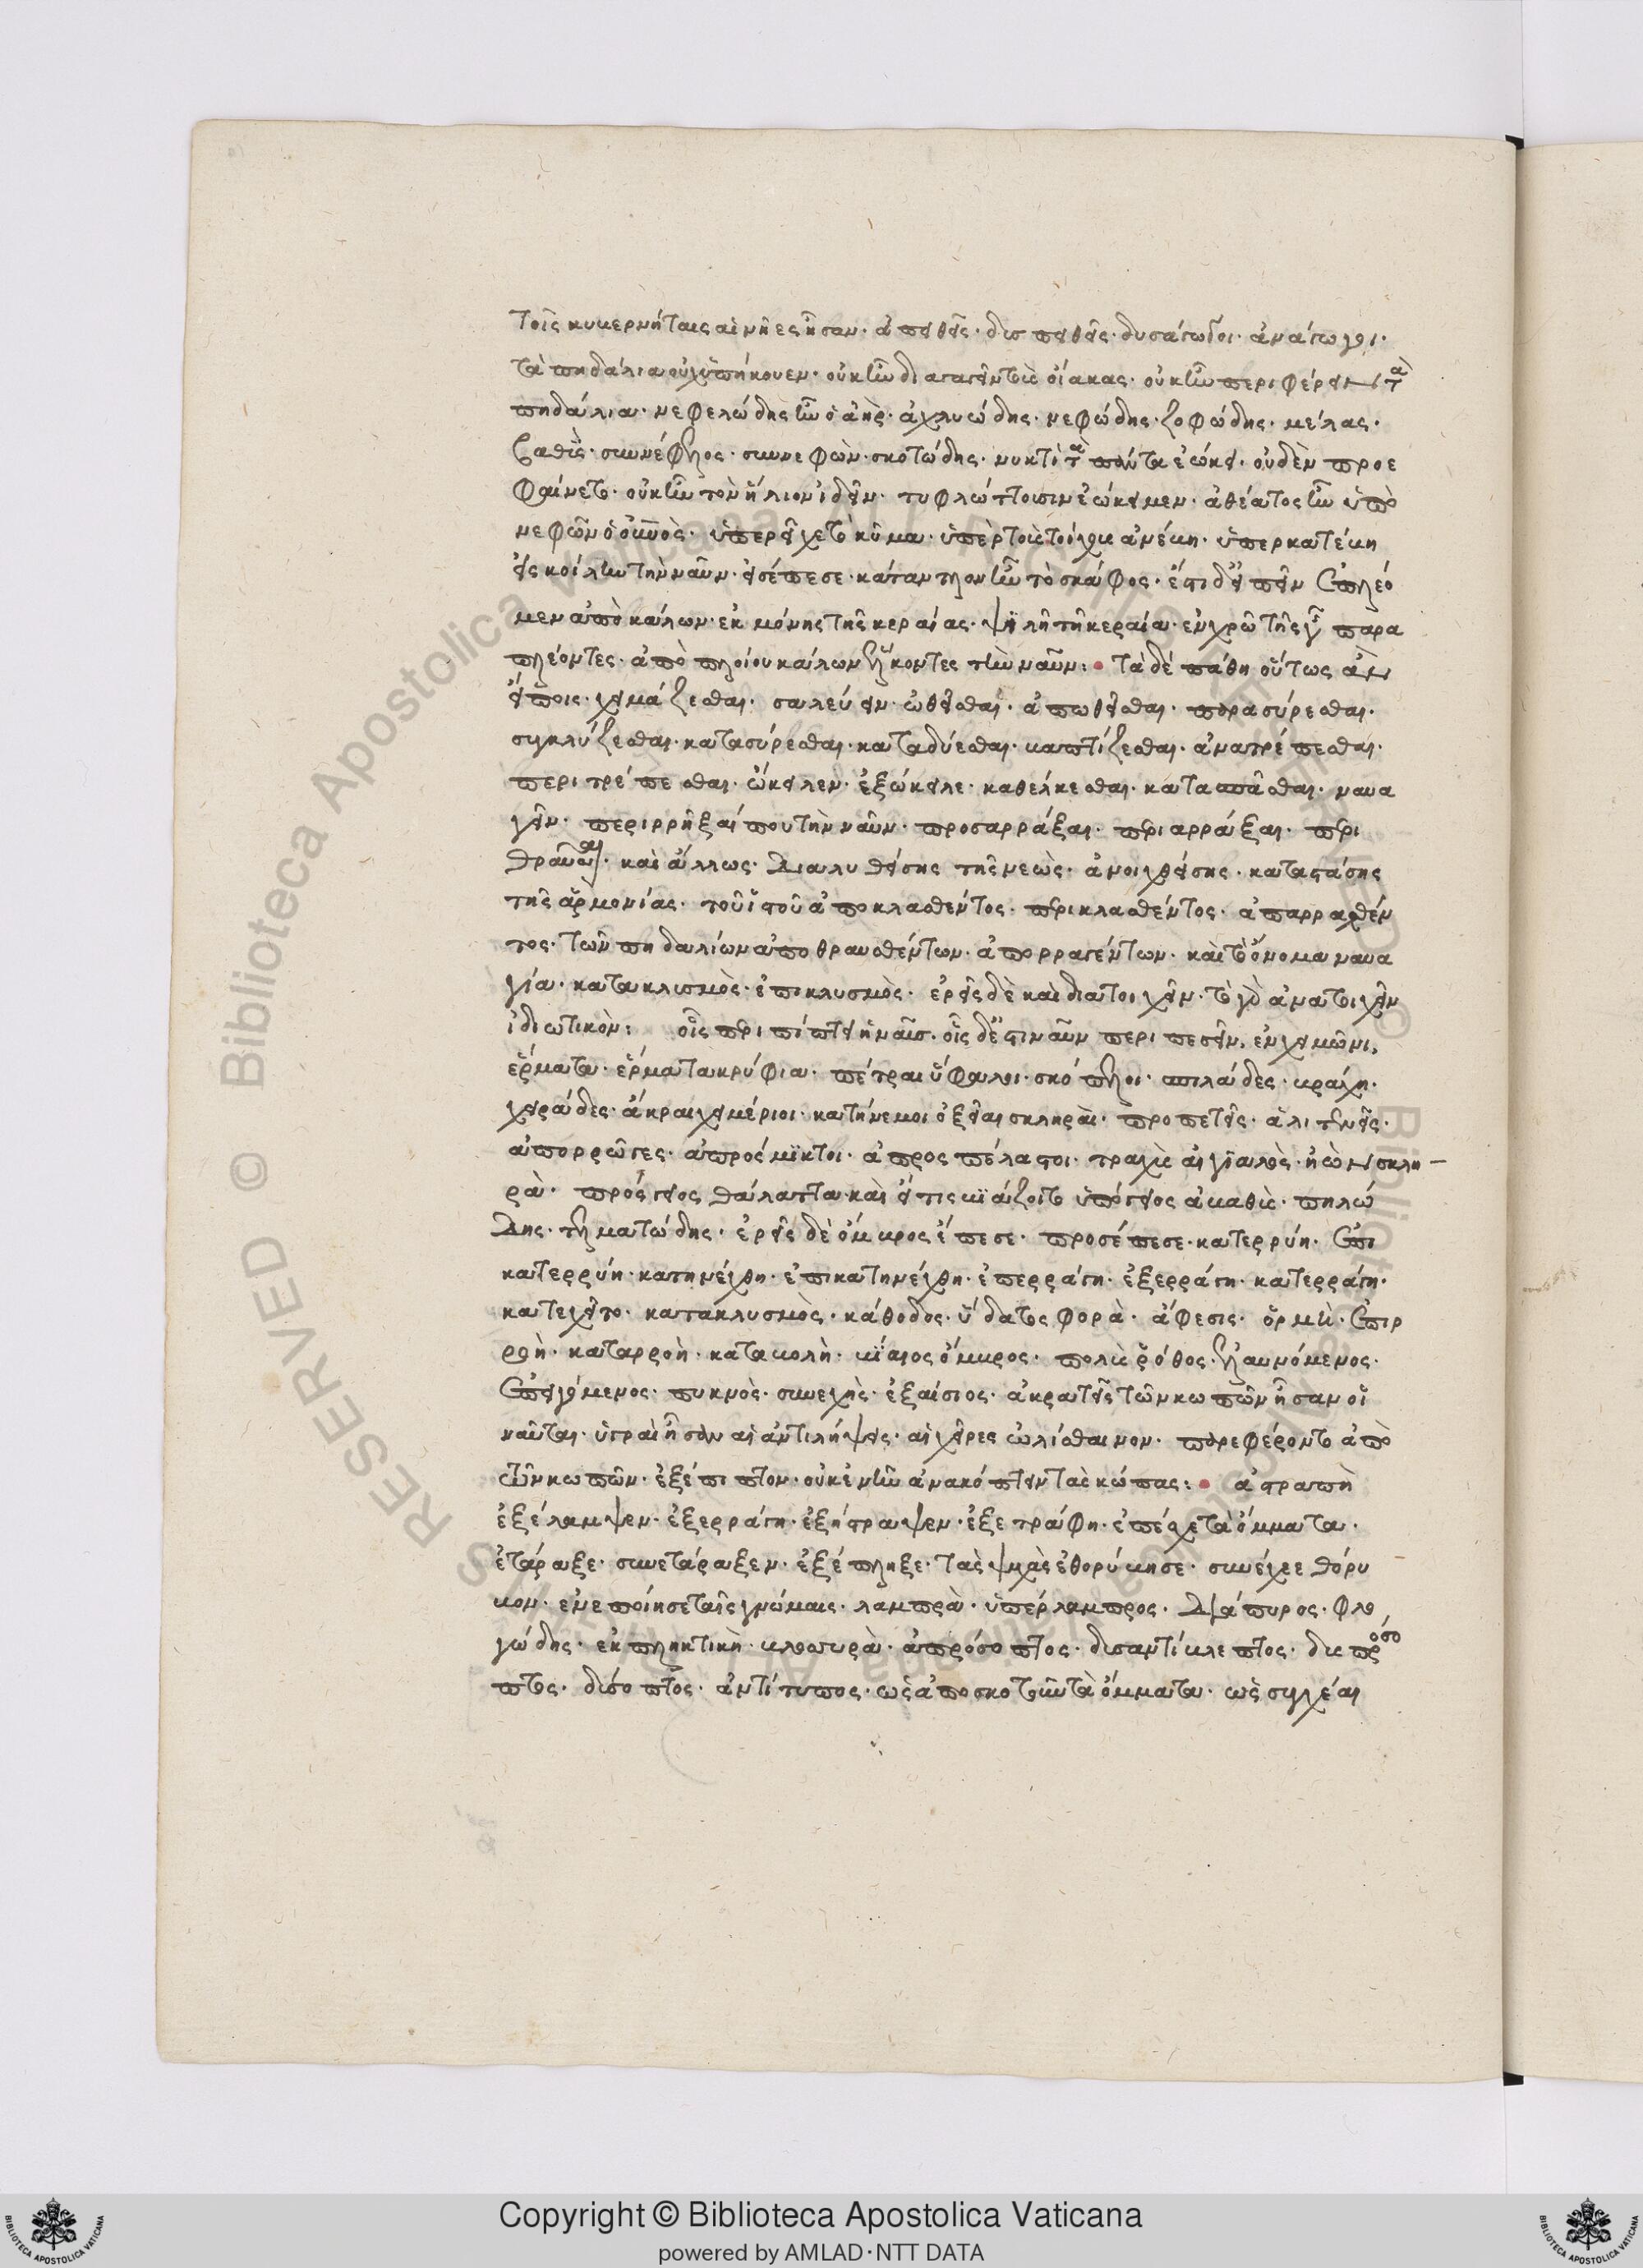 τοῖς κυβερνήταις αἱ νῆες ἦσαν· ἀπειθεῖς· δυσπειθεῖς· δυσάγωγοι· ἀνάγωγοι·
τὰ πηδάλια οὐχ ὑπήκουεν· οὐκ ἦν διαγαγεῖν τοὺς οἴακας· οὐκ ἦν περιφέρειν τὰ
πηδάλια· νεφελώδης ἦν ὁ ἀὴρ· ἀχλυώδης· νεφώδης· ζοφώδης· μέλας·
βαθὺς· συννέφελος· συννεφὼν· σκοτώδης· νυκτὶ τὰ πάντα ἐῴκει· οὐδὲν προε
φαίνετο· οὐκ ἦν τὸν ἥλιον ἰδεῖν· τυφλώττουσιν ἐῴκειμεν· ἀθέατος ἦν ὑπὸ
νεφῶν ὁ οὐνὸς· ὑπερείχετο κῦμα· ὑπὲρ τοὺς τοίχους ἀνέβη· ὑπερκατέβη
εἰς κοίλην τὴν ναῦν· εἰσέπεσε· κατάντλον ἦν τὸ σκάφος· ἔστι δ' εἰπεῖν ἐπλέο
μεν ἀπὸ κάλων· ἐκ μόνης τῆς κεραίας· ψιλῆ τῆ κεραία· ἐν χρῶ τῆς γῆς παρα
πλέοντες· ἀπὸ πλοίου κάλων ἕλκοντες τὴν ναῦν: τὰ δὲ πάθη οὕτως ἂν
εἴποις· χειμάζεσθαι· σαλεύειν· ὠθεῖσθαι· ἀπωθεῖσθαι· παρασύρεσθαι·
συγκλύζεσθαι· κατασύρεσθαι· καταδύεσθαι· βαπτίζεσθαι· ἀνατρέπεσθαι·
περιτρέπεσθαι· ὤκειλεν· ἐξώκειλε· καθέλκεσθαι· κατασπᾶσθαι· ναυα
γεῖν· περιρρῆξαί που τὴν ναῦν· προσαρράξαι· περιαρράξαι· περι
θραῦσαι· καὶ ἄλλως· διαλυθείσης τῆς νεὼς· ἀνοιχθείσης· καταγείσης
τῆς ἁρμονίας· τοῦ ἱστοῦ ἀποκλασθέντος· περικλασθέντος· ἀπαρραχθέν
τος· τῶν πηδαλίων ἀποθραυσθέντων· ἀπορραγέντων· καὶ τὸ ὄνομα ναυα
γία· κατακλυσμὸς· ἐπικλυσμὸς· ἐρεῖς δὲ καὶ διατοιχεῖν· τὸ γὰρ ἀνατοιχεῖν
ἰδιωτικὸν: οἷς περιπίπτει ἡ ναῦς· οἷς δ' ἔστι ναῦν περιπεσεῖν, ἐν χειμῶνι,
ἕρματα· ἕρματα κρύφια· πέτραι ὕφαλοι· σκόπελοι· σπιλάδες· βράχη·
χοιράδες· ἄκραι χειμέριοι· κατήνεμοι ὀξεῖαι σκληραὶ· προπετεῖς· ἁλιτενεῖς·
ἀπορρῶγες· ἀπρόσμικτοι· ἀπροσπέλαστοι· τραχὺς αἰγιαλὸς· ἠϊὼν σκλη
ρὰ· πρόσγειος θάλαττα· καὶ εἴ τις βιάζοιτο ὑπόγειος ἀβαθὺς· πηλώ
δης· τελματώδης· ἐρεῖς δὲ ὄμβρος ἔπεσε· προσέπεσε· κατερρύη· ἐπι
κατερρύη· κατηνέχθη· ἐπικατηνέχθη· ἐπερράγη· ἐξερράγη· κατερράγη·
κατεχεῖτο· κατακλυσμὸς· κάθοδος· ὕδατος φορὰ· ἄφεσις· ὁρμὴ· ἐπιρ
ροὴ· καταρροὴ· καταβολὴ· βίαιος ὄμβρος· πολὺς ῥόθος· ἐλαυνόμενος·
ἐπειγόμενος· πυκνὸς· συνεχὴς· ἐξαίσιος· ἀκρατεῖς τῶν κωπῶν ἦσαν οἱ
ναῦται· ὑγραὶ ἦσαν αἱ ἀντιλήψεις· αἱ χεῖρες ὠλίσθαινον· παρεφέροντο ἀπὸ
τῶν κωπῶν· ἐξέπιπτον· οὐκ ἐνῆν ἀνακόπτειν τὰς κώπας: ἀστραπὴ
ἐξέλαμψεν· ἐξερράγη· ἐξήστραψεν· ἐξετράφη· ἐπέσχε τὰ ὄμματα·
ἐτάραξε· συνετάραξεν· ἐξέπληξε· τὰς ψυχὰς ἐθορύβησε· συνέχεε θόρυ
βον· ἐνεποίησε ταῖς γνώμαις· λαμπρὰ· ὑπέρλαμπρος· διάπυρος· φλο
γώδης· ἐκπληκτικὴ· βλοσυρὰ· ἀπρόσοπτος· δυσαντίβλεπτος· δυσπρόσο
πτος· δύσοπτος· ἀντίτυπος· ὡς ἀποσκοτοῦν τὰ ὄμματα· ὡς συγχέαι